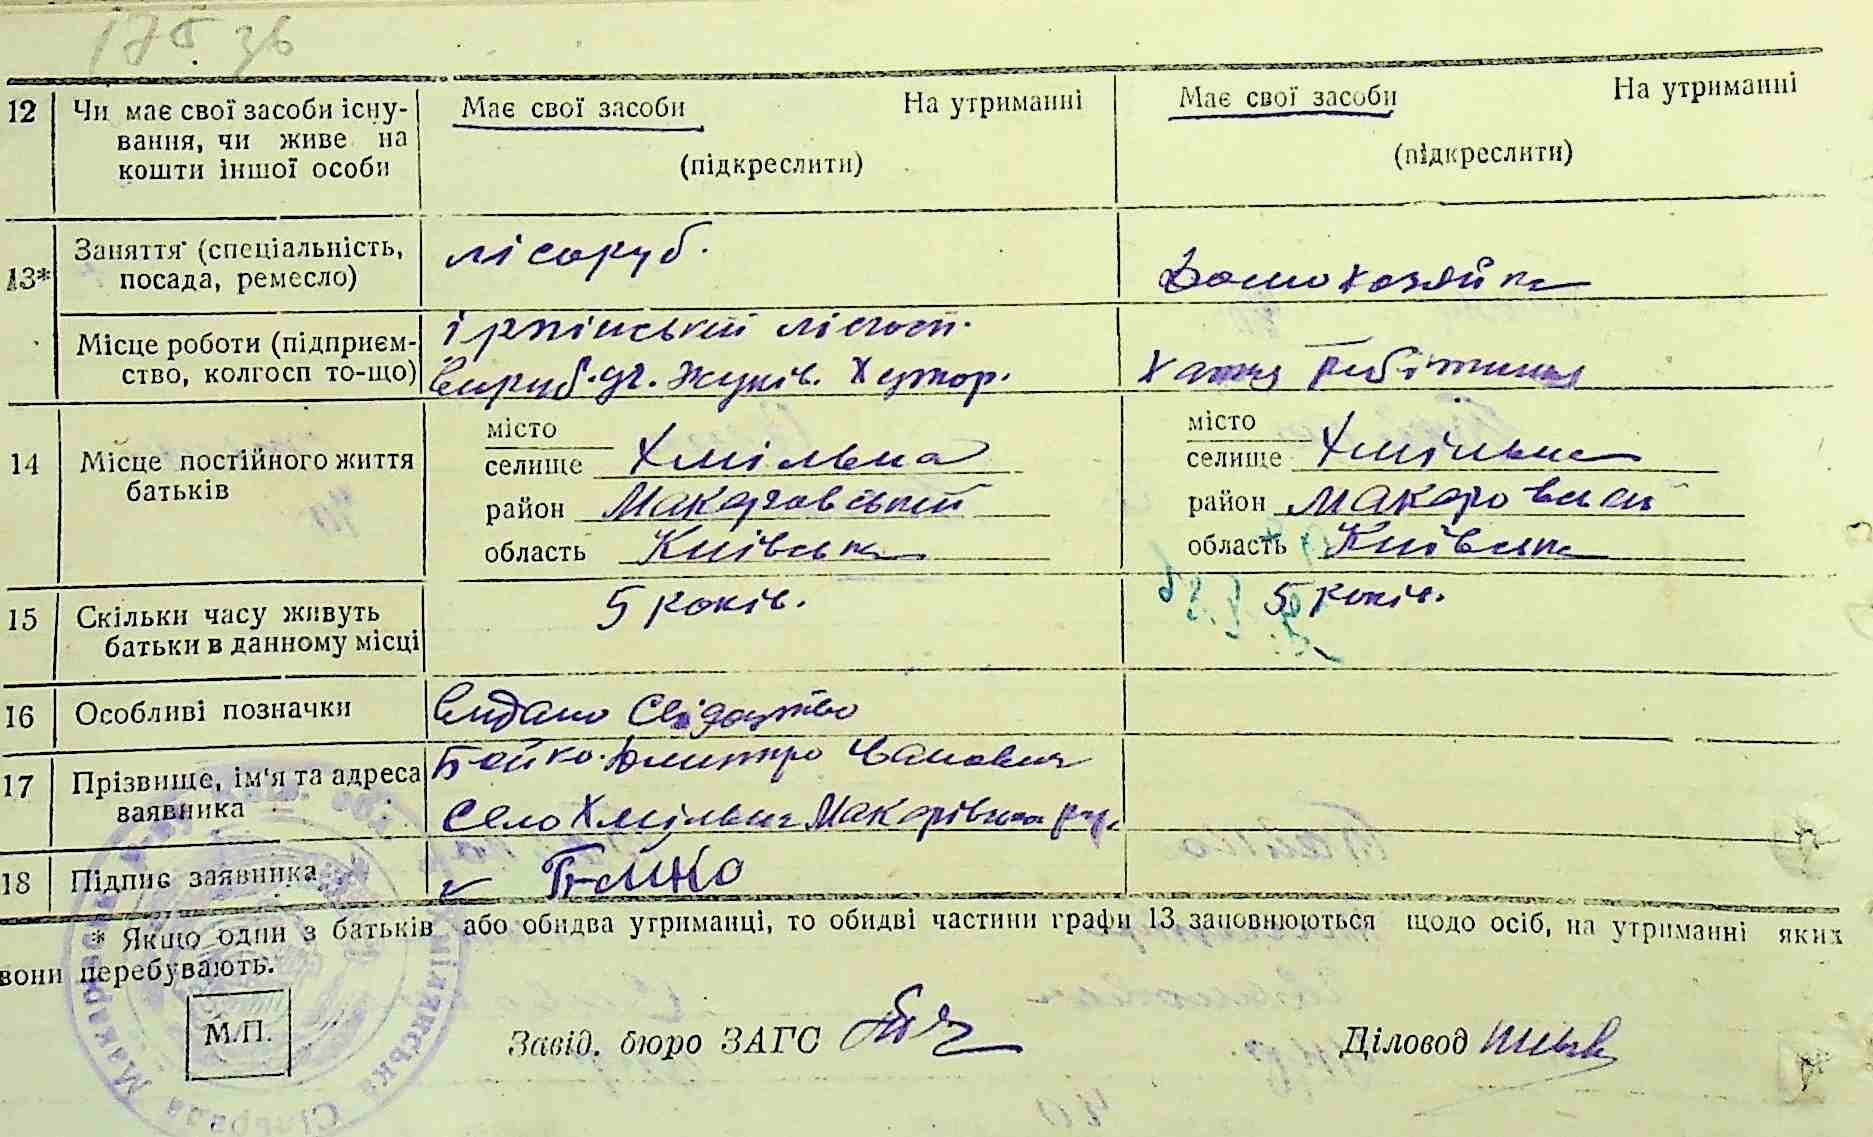 175 зв
12 Чи має свої засоби існу- Має свої засоби На утриманні Має свої засоби На утриманні
вання, чи живе на
кошти іншої особи (підкреслити) (підкреслити)
13* Заняття (спеціальність, лісоруб.
посада, ремесло) Домохозяйка
Місце роботи (підприєм- ірпінський лісгосп.
ство, колгосп то-що) вируб. уч. Жуків. Хутор. Хатня робітниця
14 Місце постійного життя місто місто
батьків селище Хмільна селище Хмільна
район Макаровський район Макаровський
область Київська область Київська
15 Скільки часу живуть 5 років. 5 років.
батьки в данному місці
16 Особливі позначки видано Свідоцтво
17 Прізвище, ім'я та адреса Бойко Дмитро Іванович
заявника Село Хмільна Макарівська
18 Підпис заявника Бойко
* Якщо один з батьків або обидва утриманці, то обидві частини графи 13 заповнюються щодо осіб, на утриманні яких
вони перебувають.
М.П. Завід. бюро ЗАГС Діловод
Сільрада Мака